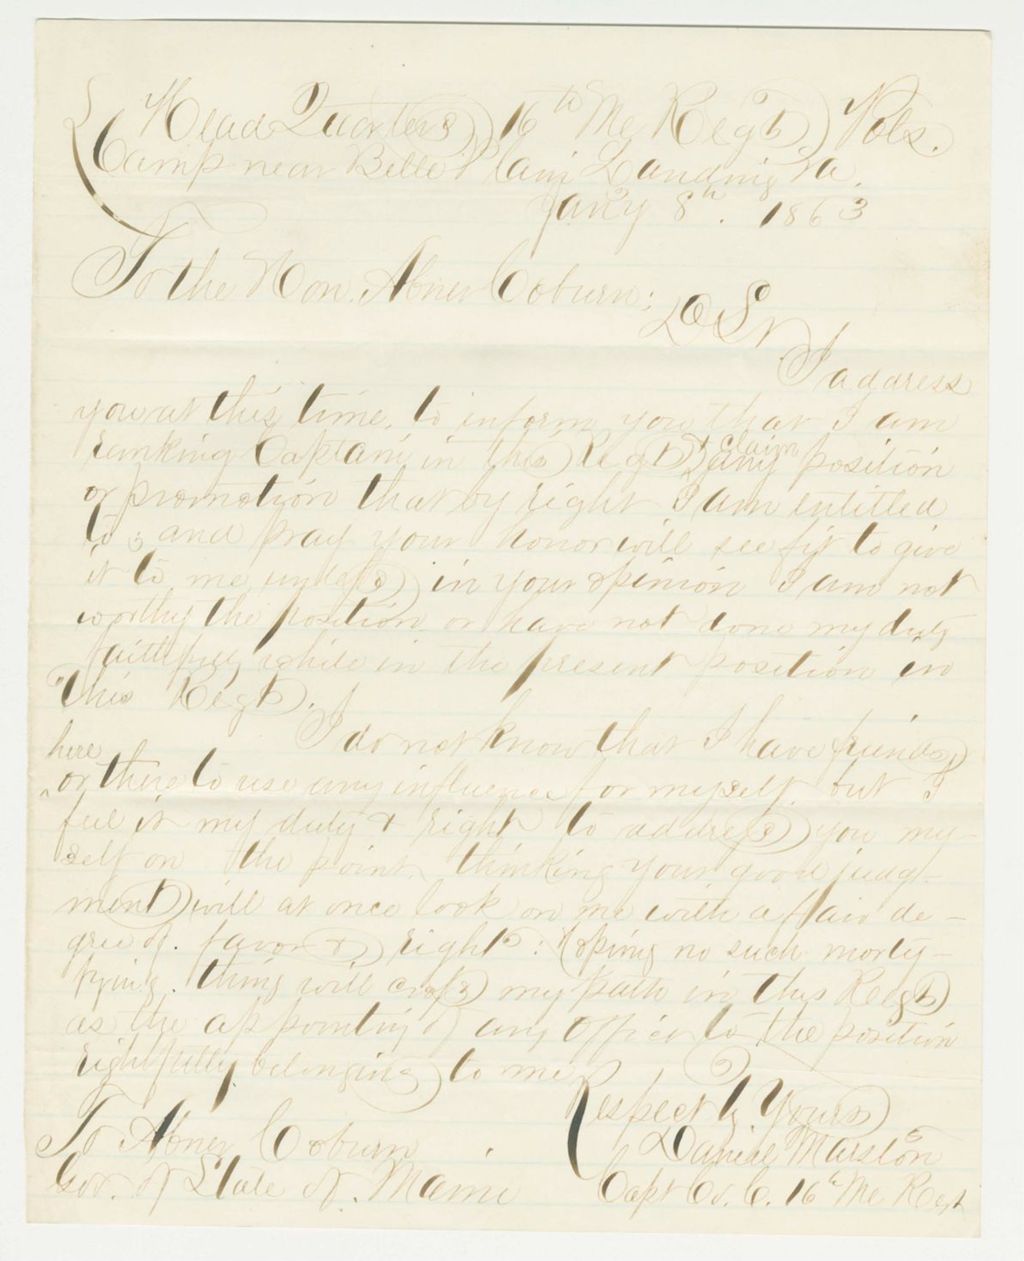 Head Quarters 16th Me Regt. Vols.
Camp near Belle Plain Landing Va.
Jany 8th. 1863
To the Hon. Abner Coburn;
D Sir
I address
you at this time, to inform you that I am
ranking Captain in this Regt & claim any position
or promotion that by right I am entitled
to; and pray your honor will see fit to give
it to me, unless in your opinion I am not
worthy the position or have not done my duty
faithfully while in the present position in
this Regt.
I do not know that I have friends
here
or there to use any influence for myself, but I
feel it my duty & right to address you my-
self on the point, thinking your good judg-
ment will at once look on me with a fair de-
gree of. favor & right: hoping no such morty-
fying. thing will cross my path in this Regt
as the appointing of any officer to the position
rightfully belonging to me.
Respectly Yours
To Abner Coburn Daniel Marston
Gov. of State of. Maine Capt Co. C. 16th Me Regt